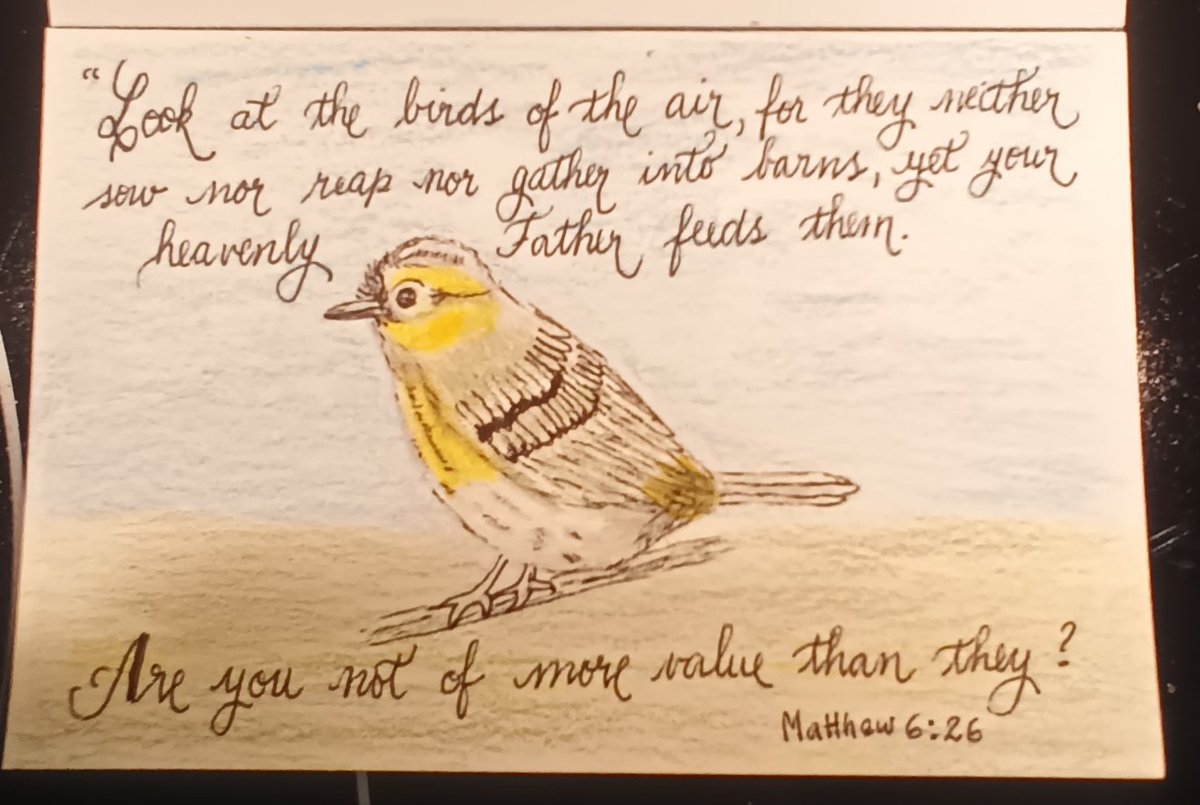 "Look at the birds of the air, for they neither
sow nor reap nor gather into barns, yet your
heavenly Father feeds them.
Are you not of more value than they?
Matthew 6:26